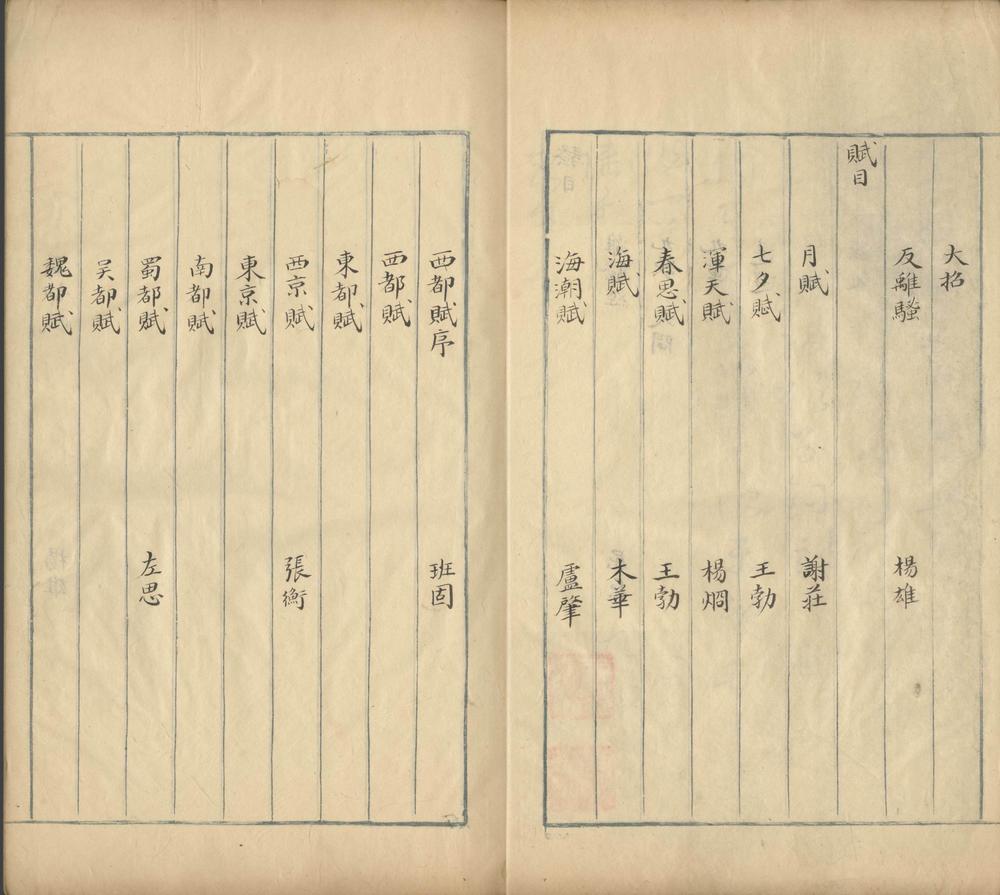 大招
反離騷 楊雄
賦目
月賦 謝莊
七夕賦 王勃
渾天賦 楊烱
春思賦 王勃
海賦 木華
海潮賦 盧肇
西都賦序 班固
西都賦
東都賦
西京賦 張衡
東京賦
南都賦
蜀都賦 左思
吴都賦
魏都賦